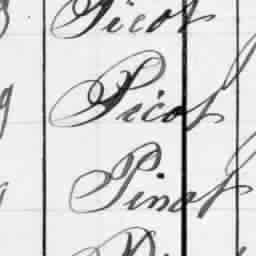 Picot
Picot
Pinot